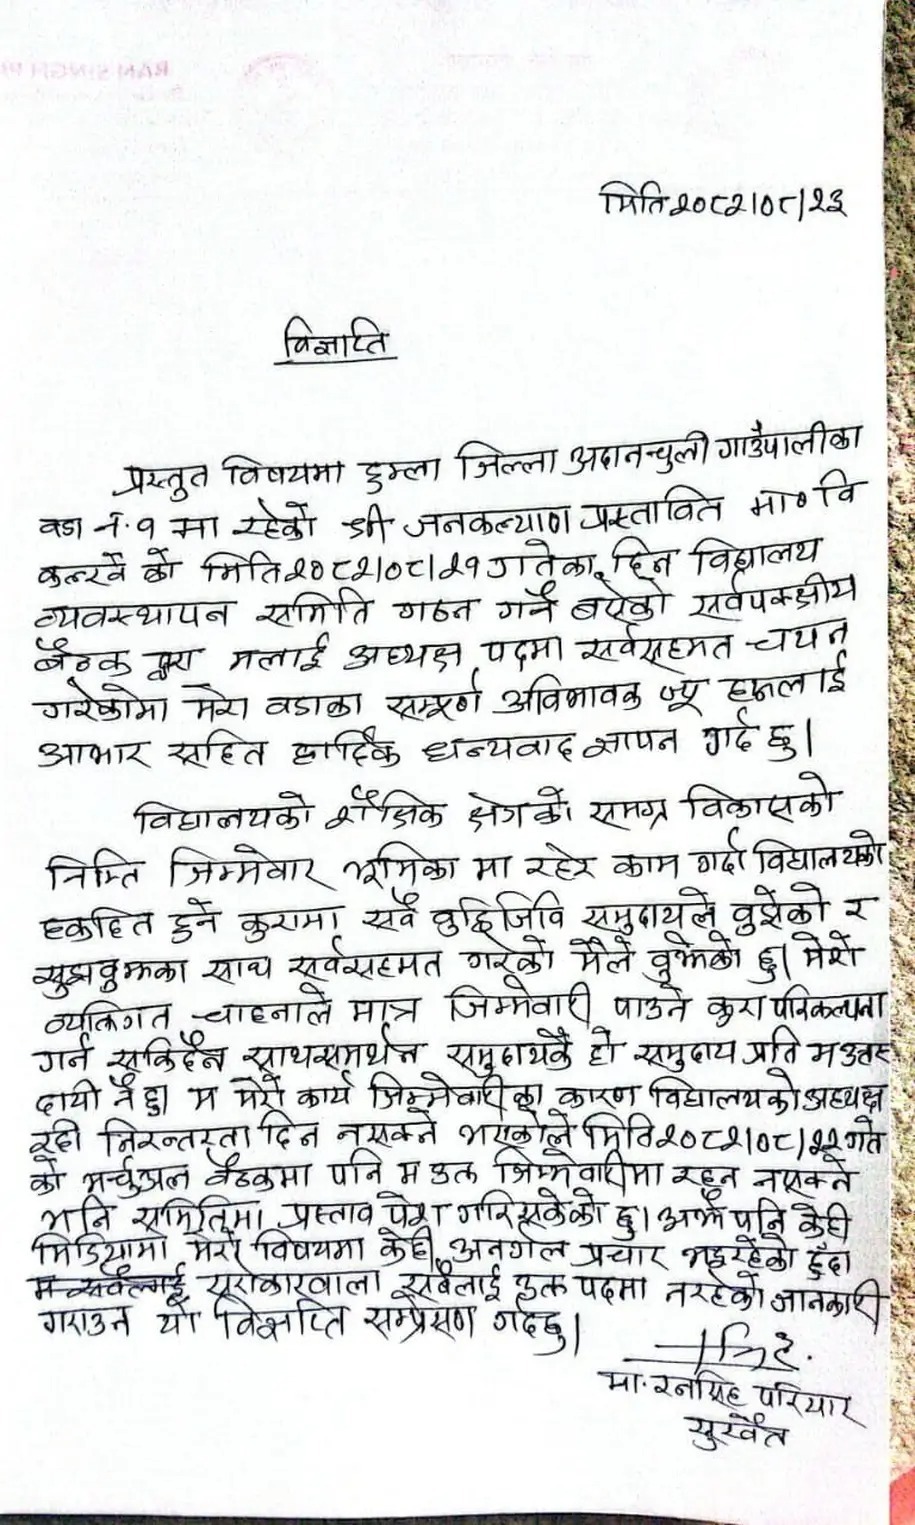 मिति २०८२/०८/२३
विज्ञप्ति
प्रस्तुत विषयमा हुम्ला जिल्ला अदानचुली गाउँपालीका
वडा नं. १ मा रहेको श्री जनकल्याण प्रस्तावित मा० वि
को मिति २०८२/०८/२१ गतेका दिन विद्यालय
व्यवस्थापन समिति गठन गर्न बसेको सर्वपक्षीय
बैठक द्वारा मलाई अध्यक्ष पदमा सर्वसहमत चयन
गरेकोमा मेरा वडाका सम्पूर्ण अविभावक ज्यू हरुलाई
आभार सहित हार्दिक धन्यवाद ज्ञापन गर्द छु।
विद्यालयको शैक्षिक क्षेत्रको समग्र विकासको
निम्ति जिम्मेवार भूमिका मा रहेर काम गर्दा विद्यालयको
हकहित हुने कुरामा सवै वुद्धिजिवि समुदायले वुझेको र
सुझवुझका साथ सर्वसहमत गरेको मैले वुझेको छु। मेरो
व्यक्तिगत चाहनाले मात्र जिम्मेवारी पाउने कुरा परिकल्पना
गर्न सकिदैन साथ समर्थन समुदायकै हो समुदाय प्रति म उत्तर
दायी नै छु। म मेरो कार्य जिम्मेवारीका कारण विद्यालयको अध्यक्ष
रही निरन्तरता दिन नसक्ने भएकोले मिति २०८२/०८/२२ गते
को भर्चुअल बैठकमा पनि म उक्त जिम्मेवारीमा रहन नसक्ने
भनि समितिमा प्रस्ताव पेश गरिसकेको छु। अझै पनि केही
मिडियामा मेरो विषयमा केही अनर्गल प्रचार भइरहेको हुँदा
सरोकारवाला सवैलाई उक्त पदमा नरहेको जानकारी
गराउन यो विज्ञप्ति सम्प्रेसण गर्दछु।
मा. रनसिंह परियार
सुर्खेत